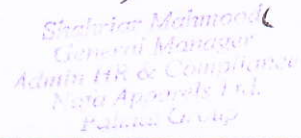 Shahriar Mahmood
General Manager
Admin HR & Compliance
Apparels Ltd.
Group